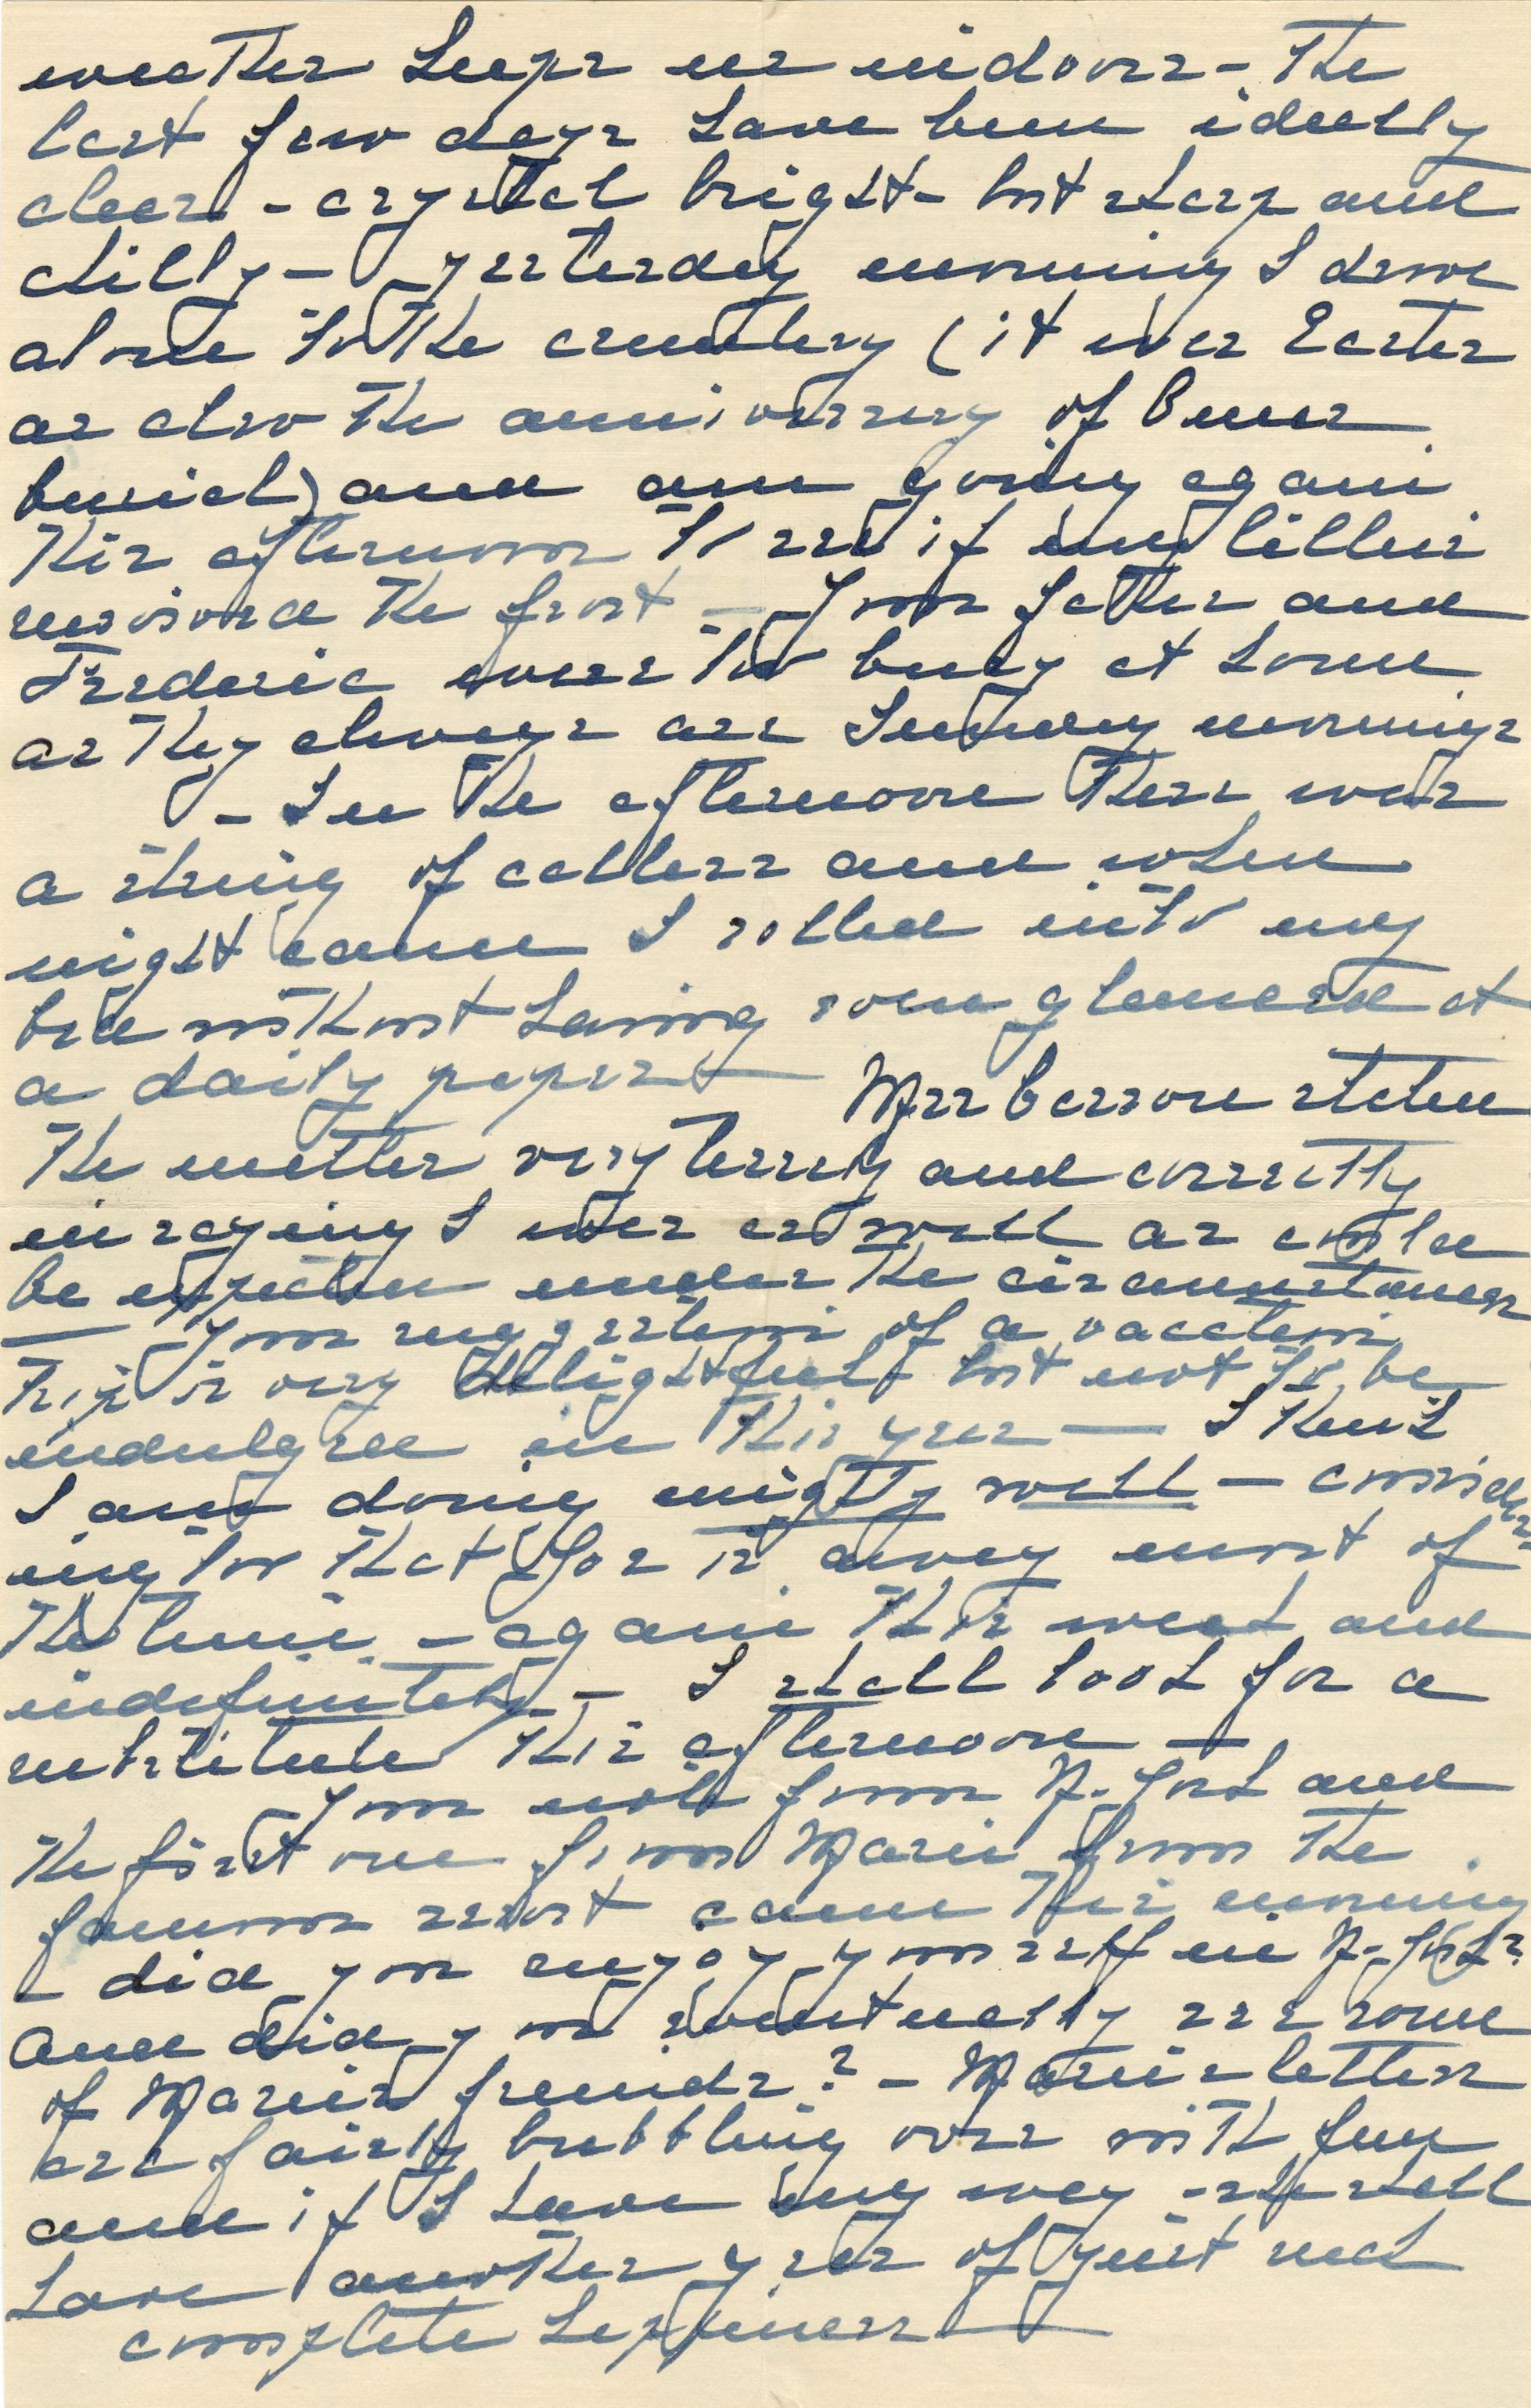 weather keeps us indoors - The
last few days have been ideally
clear - crystal bright - but sharp and
chilly - yesterday morning I drove
alone to the cemetery (it was Easter
as also the anniversary of
burial) and am going again
this afternoon to see if my lillies
survived the frost - Your father and
Frederic were too busy at home
as they always are Sunday mornings
- In the afternoon there was
a string of callers and when
night came I rolled into my
bed without having even glanced at
a daily paper -
Mrs Carson stated
the matter very tersely and correctly
in saying I was as well as could
be expected under the circumstances
- Your suggestion of a vacation
trip is very delightful but not to be
indulged in this year - I think
I am doing mighty well - consider-
ing too that Joe is away most of
the time - again this week and
indefinitely - I shall look for a
substitute this afternoon -
Your note from N-York and
the first one from Marie from the
famous resort came this morning
- did you enjoy yourself in N-York?
And did you eventually see some
of Maries friends? - Maries letters
are fairly bubbling over with fun
and if I have my way - she shall
have another year of just such
complete happiness -